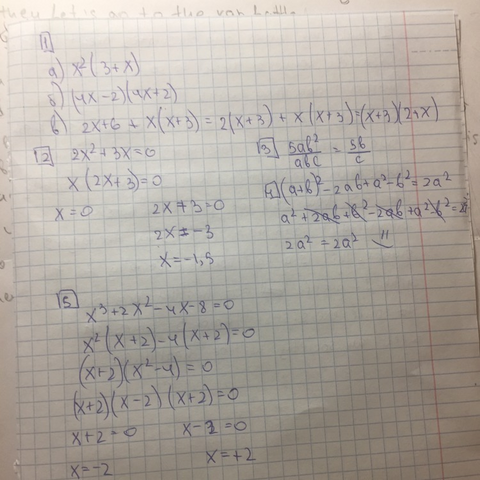 they let is an to the van
1
а) x²(3+x)
б) (4x-2)(4x+2)
в) 2x+6 + x(x+3) = 2(x+3) + x(x+3)=(x+3)(2+x)
2 2x²+3x=0
x(2x+3)=0
x=0 2x+3=0
2x=-3
x=-1,5
3 5ab²/abc = 5b/c
4 (a+b)²-2ab+a²-b²=2a²
a²+2ab+b²-2ab+a²-b²=2a²
2a²=2a²
5
x³+2x²-4x-8=0
x²(x+2)-4(x+2)=0
(x+2)(x²-4)=0
(x+2)(x-2)(x+2)=0
x+2=0 x-2=0
x=-2 x=+2